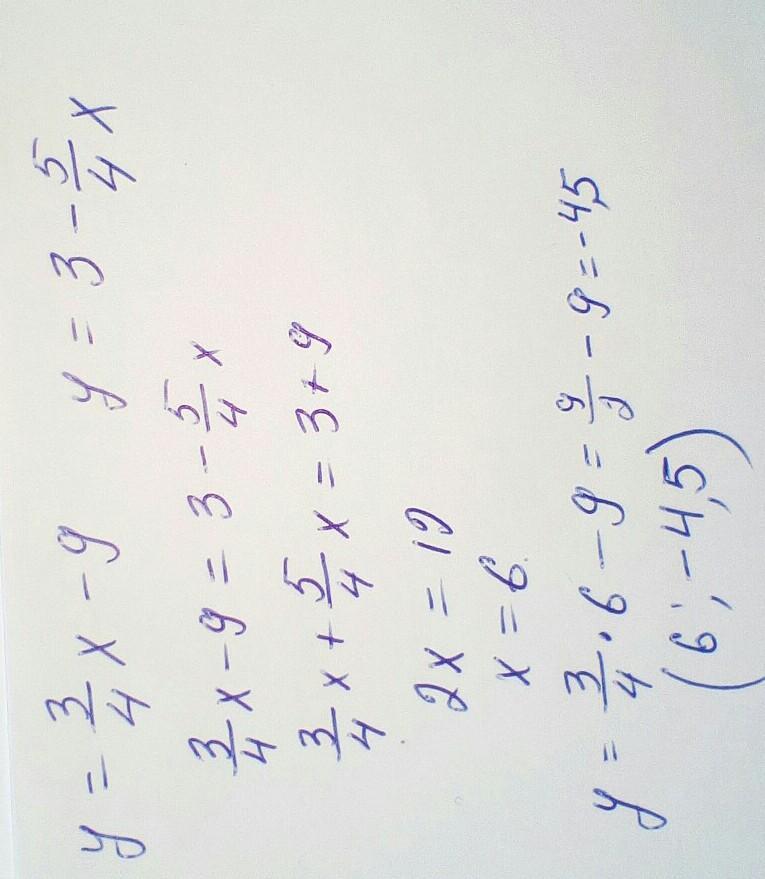 y = 3/4 x - 9 y = 3 - 5/4 x
3/4 x - 9 = 3 - 5/4 x
3/4 x + 5/4 x = 3 + 9
2x = 12
x = 6
y = 3/4 · 6 - 9 = 9/2 - 9 = -4,5
(6; -4,5)